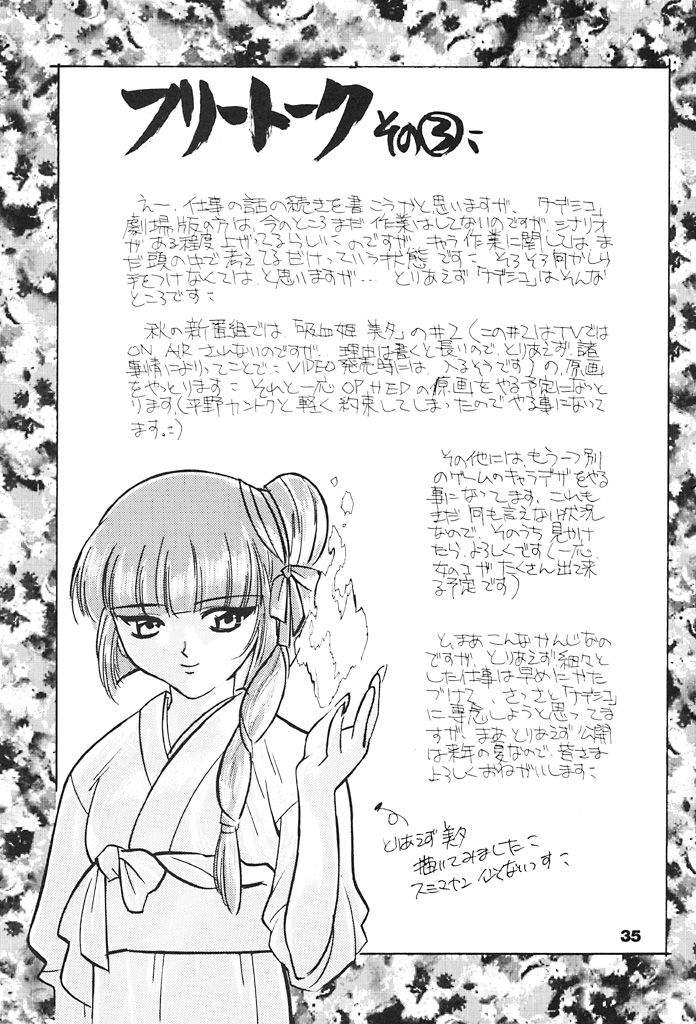 フリートーク その③ニ
えー、仕事の話の続きを書こうかと思いますが、「ナデシコ」
劇場版の方は、今のところまだ作業はしてないのですが、シナリオ
がある程度上がってるらしいくのですが、キャラ作業に関しては、ま
だ頭の中で考えてるだけっていう状態ですニ そろそろ何かしら
手をつけなくてはと思いますが… とりあえず「ナデシコ」はそんな
ところですニ
秋の新番組では「吸血姫 美夕」の#2(この#2はTVでは
ON AIR されないのですが、理由は書くと長いので、とりあえず、諸
事情によりってことでニ VIDEO発売時には、入るそうです)の原画
をやっとりますニ それと一応 OP.とEDの原画をやる予定になっと
ります。(平野カントクと軽く約束してしまったのでやる事になって
ます。ニ)
その他には、もう一つ別
のゲームのキャラデザをやる
事になってます、これも
まだ何も言えない状況
なので、そのうち見かけ
たら、よろしくです(一応
女のコがたくさん出て来
る予定です)
と、まあこんなかんじなの
ですが、とりあえず細々と
した仕事は早めにかた
づけて、さっさと「ナデシコ」
に専念しようと思ってま
すが、まあとりあえず公開
は来年の夏なので、皆さま
よろしくおねがいしますニ
とりあえず 美夕
描いてみましたニ
スミマセン 似てないっスニ
35